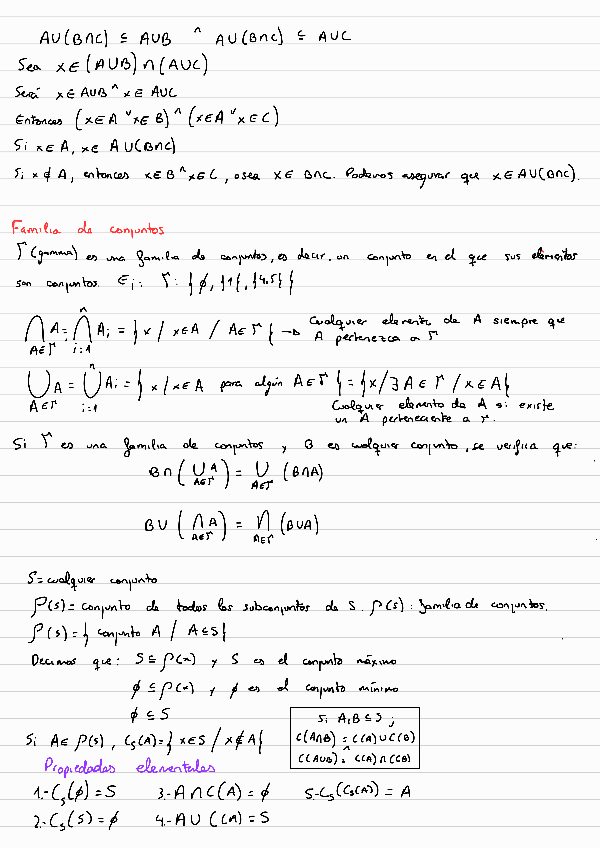 A∪(B∩C) ⊆ A∪B ^ A∪(B∩C) ⊆ A∪C
Sea x∈(A∪B)∩(A∪C)
Será x∈A∪B ^ x∈A∪C
Entonces (x∈A ∨ x∈B) ^ (x∈A ∨ x∈C)
Si x∈A, x∈A∪(B∩C)
Si x∉A, entonces x∈B ^ x∈C, osea x∈B∩C. Podemos asegurar que x∈A∪(B∩C).
Familia de conjuntos
Γ (gamma) es una familia de conjuntos, es decir, un conjunto en el que sus elementos
son conjuntos. Ej: Γ: {∅, {1}, {4,5}}
⋂ A∈Γ A = ⋂ i=1 n Ai = {x / x∈A / A∈Γ} → Cualquier elemento de A siempre que
A pertenezca a Γ
⋃ A∈Γ A = ⋃ i=1 n Ai = {x / x∈A para algún A∈Γ} = {x/∃A∈Γ / x∈A}
Cualquier elemento de A si existe
un A perteneciente a Γ.
Si Γ es una familia de conjuntos y B es cualquier conjunto, se verifica que:
B∩(⋃ A∈Γ A) = ⋃ A∈Γ (B∩A)
B∪(⋂ A∈Γ A) = ⋂ A∈Γ (B∪A)
S = cualquier conjunto
P(S) = conjunto de todos los subconjuntos de S. P(S): familia de conjuntos.
P(S) = {conjunto A / A⊆S}
Decimos que: S⊆P(x) y S es el conjunto máximo
∅⊆P(x) y ∅ es el conjunto mínimo
∅⊆S
Si A∈P(S), Cs(A)={x∈S / x∉A}
Si A,B⊆S;
C(A∩B) = C(A)∪C(B)
^
C(A∪B) = C(A)∩C(B)
Propiedades elementales
1.- Cs(∅)=S 3.- A∩C(A)=∅ 5.- Cs(Cs(A)) = A
2.- Cs(S)=∅ 4.- A∪C(A)=S